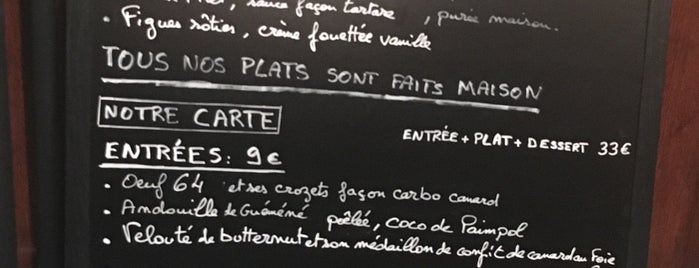 , sauce façon tartare , purée maison.
• Figues rôties, crème fouettée vanille
TOUS NOS PLATS SONT FAITS MAISON
NOTRE CARTE
ENTRÉE + PLAT + DESSERT 33€
ENTRÉES: 9€
• Oeuf 64 et ses crozets façon carbo canard
• Andouille de Guéméné poêlée, coco de Paimpol
• Velouté de butternut et son médaillon de confit de canard au Foie